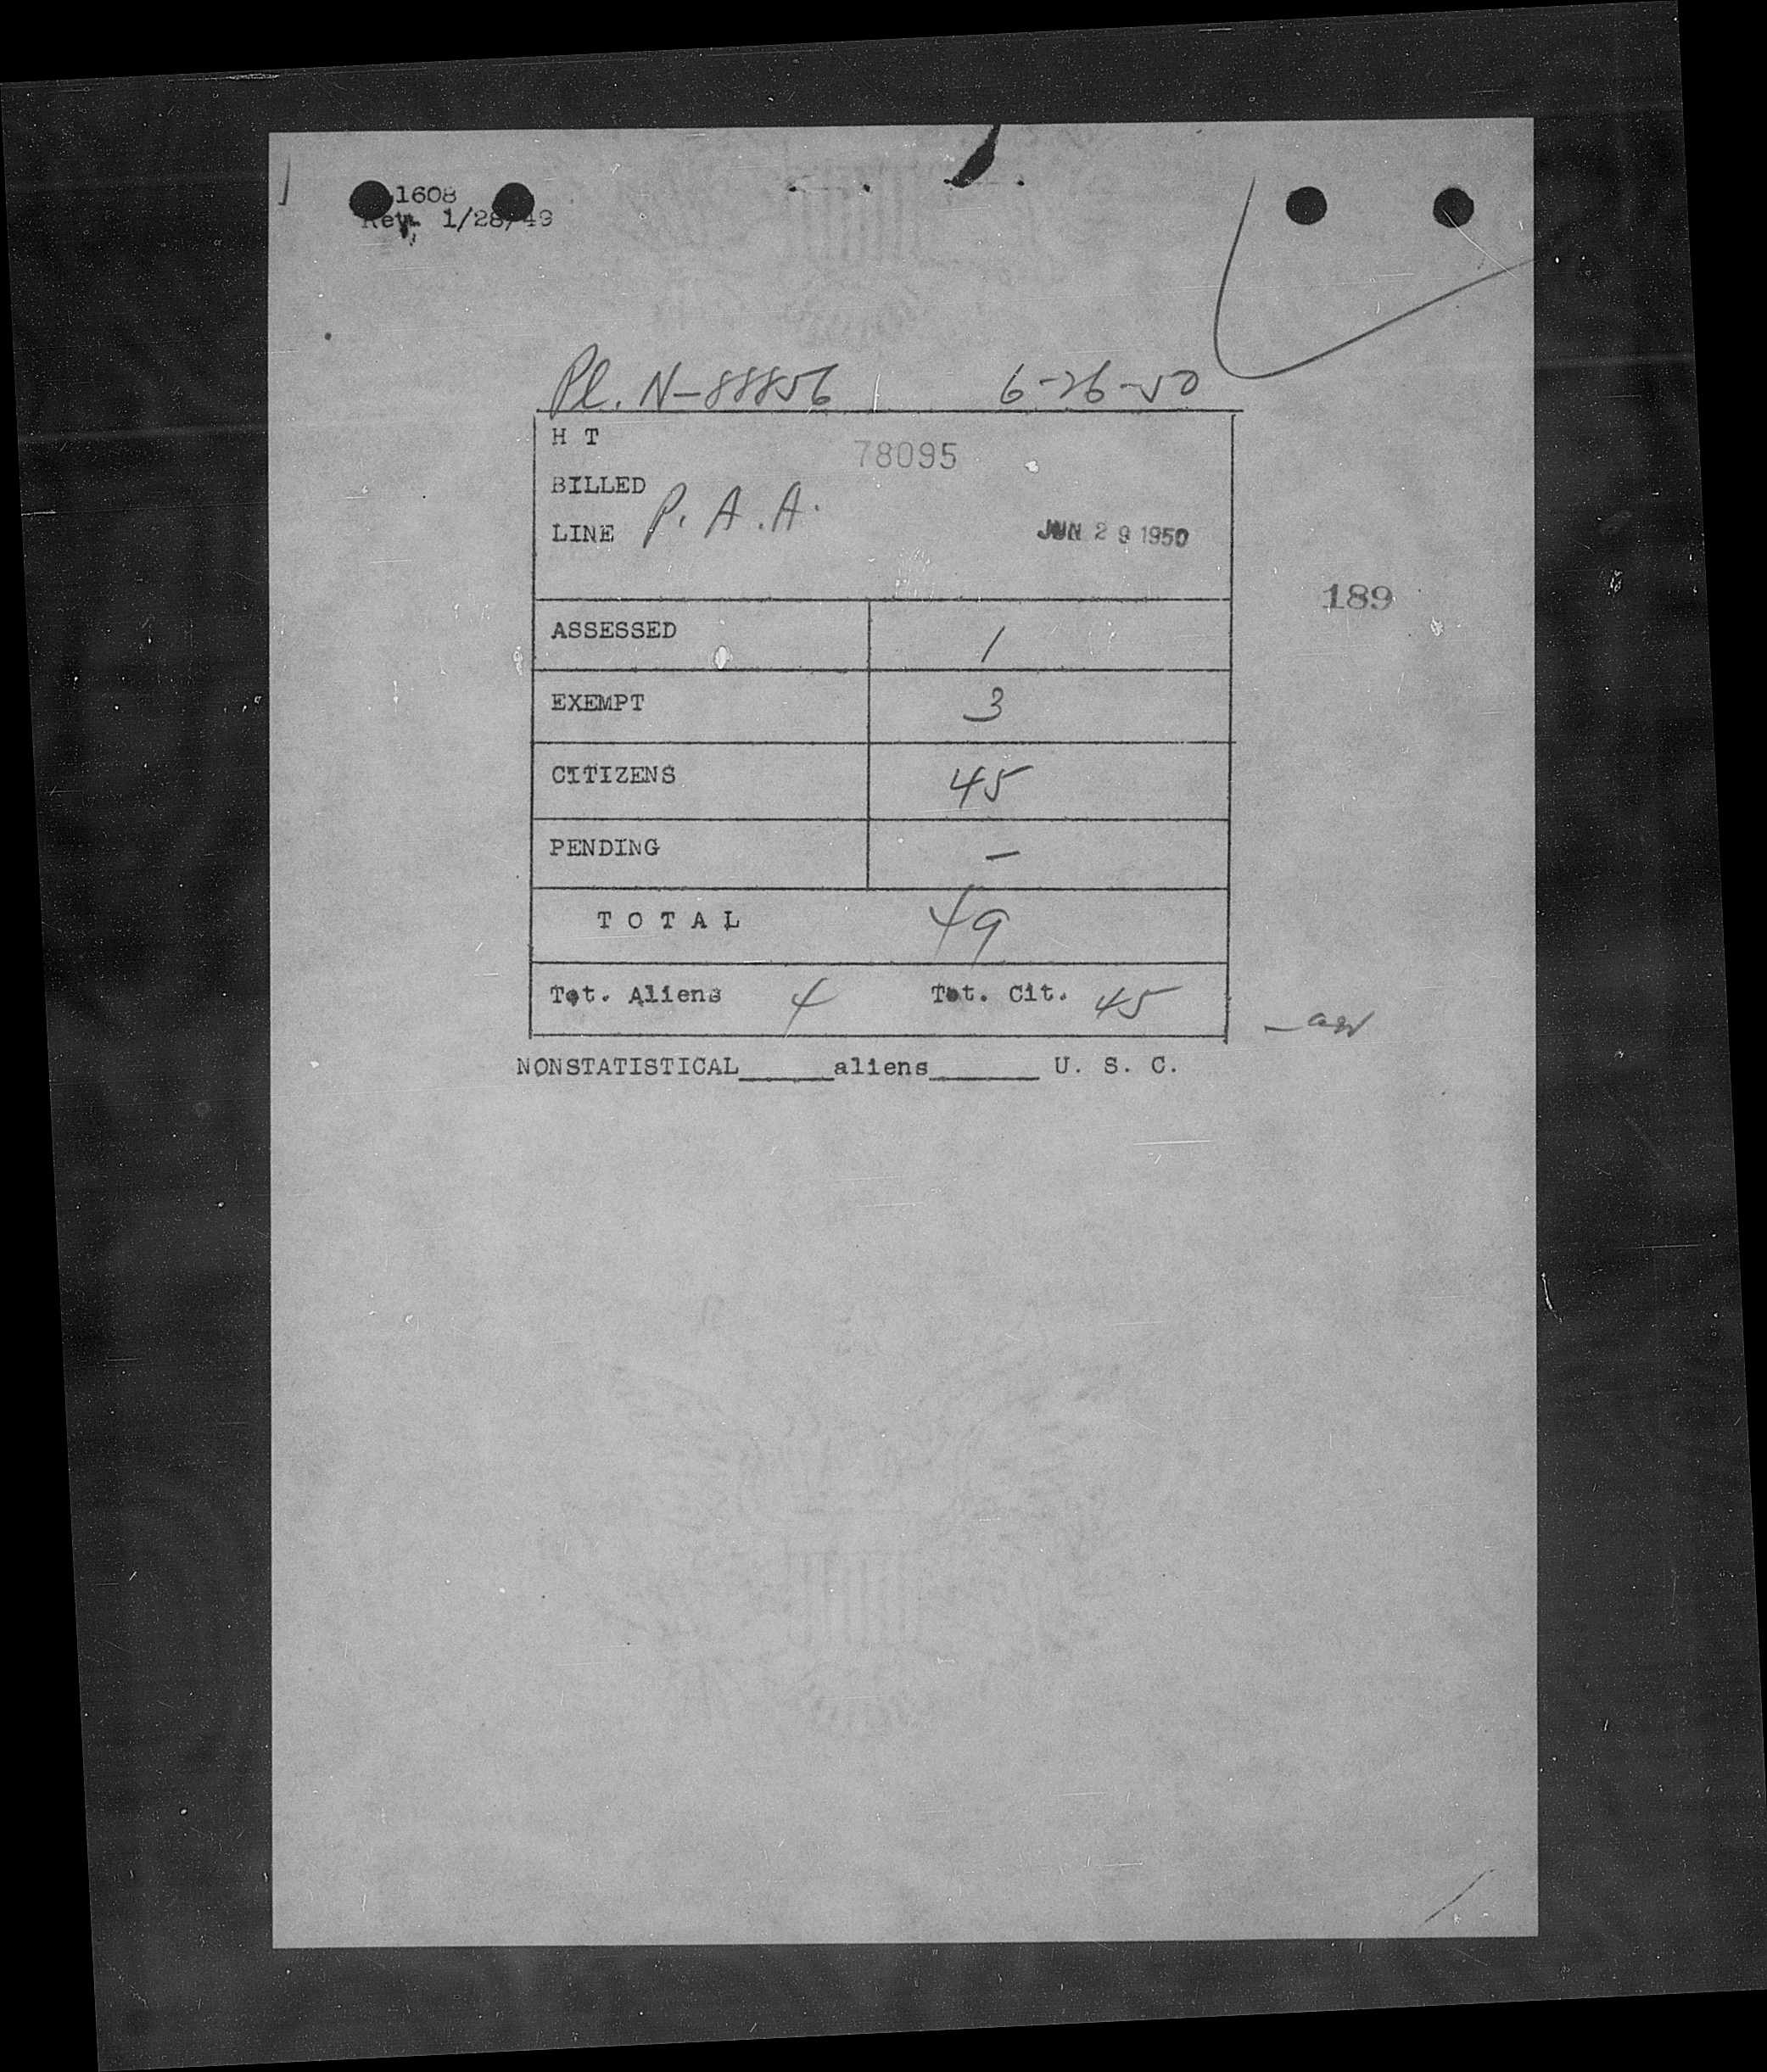 1608
Rev. 1/28/49
Pl. N-88856 6-26-50
H T
78095
BILLED
LINE P. A. A.
JUN 29 1950
189
ASSESSED 1
EXEMPT 3
CITIZENS 45
PENDING —
T O T A L 49
Tot. Aliens 4 Tot. Cit. 45
NONSTATISTICAL______aliens_______ U. S. C.